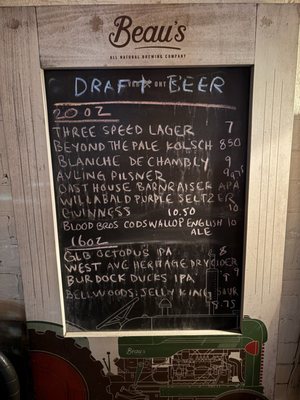 Beau's
ALL NATURAL BREWING COMPANY
DRAFT BEER
20 OZ
THREE SPEED LAGER 7
BEYOND THE PALE KOLSCH 850
BLANCHE DE CHAMBLY 9
AYLING PILSNER 9
OAST HOUSE BARNRAISER APA
WILLABALD PURPLE SELTZER 10
GUINNESS 10.50
BLOOD BROS CODSWALLOP ENGLISH 10
ALE
16OZ
GLB OCTOPUS IPA 8
WEST AVE HERITAGE DRY CIDER
BURDOCK DUCKS IPA 9
BELLWOODS: JELLY KING SOUR
8.75
Beau's